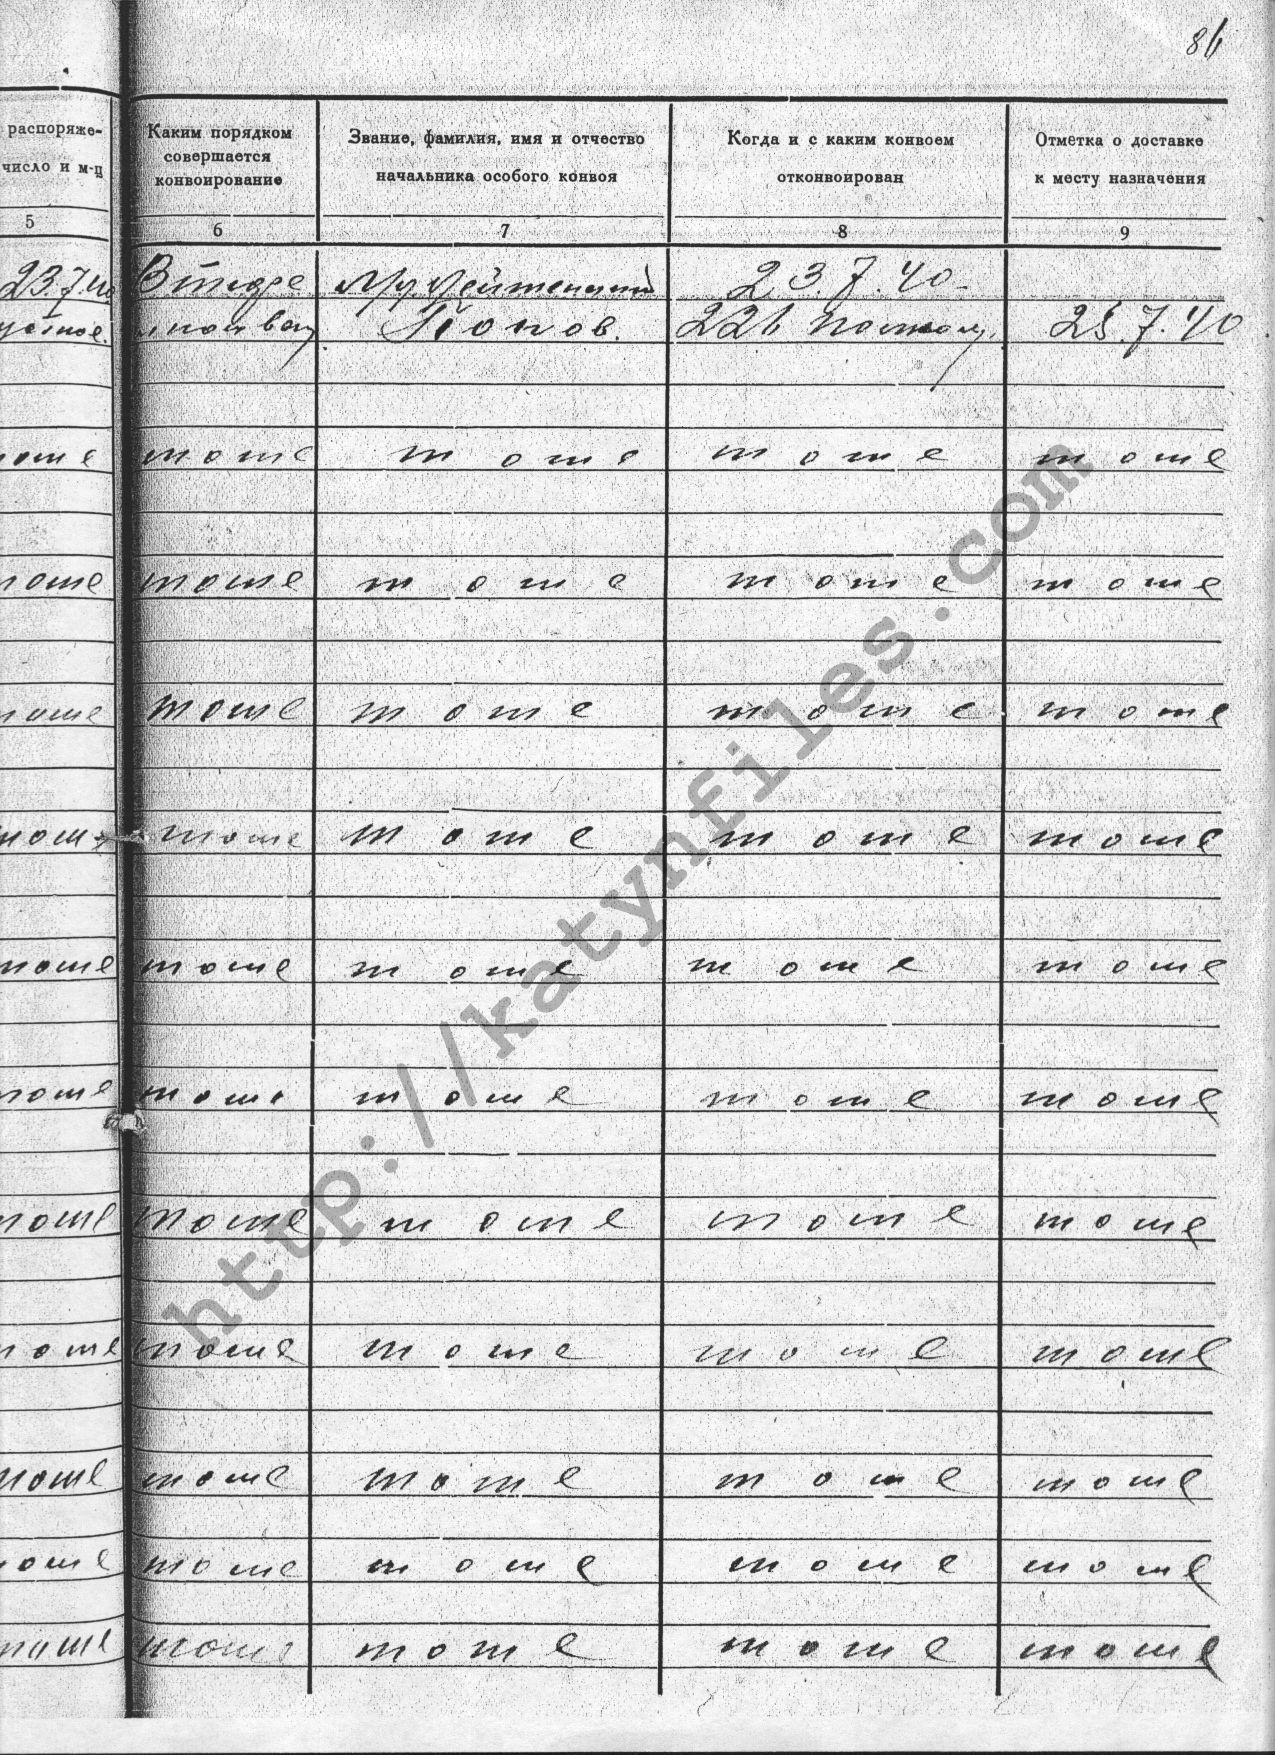 86
распоряже-
число и м-ц
5
Каким порядком
совершается
конвоирование
6
Звание, фамилия, имя и отчество
начальника особого конвоя
7
Когда и с каким конвоем
отконвоирован
8
Отметка о доставке
к месту назначения
9
23.7.40 23.7.40-
Попов. 226 25.7.40
тоже тоже тоже тоже тоже
тоже тоже тоже тоже тоже
тоже тоже тоже тоже тоже
тоже тоже тоже тоже тоже
тоже тоже тоже тоже тоже
тоже тоже тоже тоже тоже
тоже тоже тоже тоже тоже
тоже тоже тоже тоже тоже
тоже тоже тоже тоже тоже
тоже тоже тоже тоже тоже
тоже тоже тоже тоже тоже
http://katynfiles.com